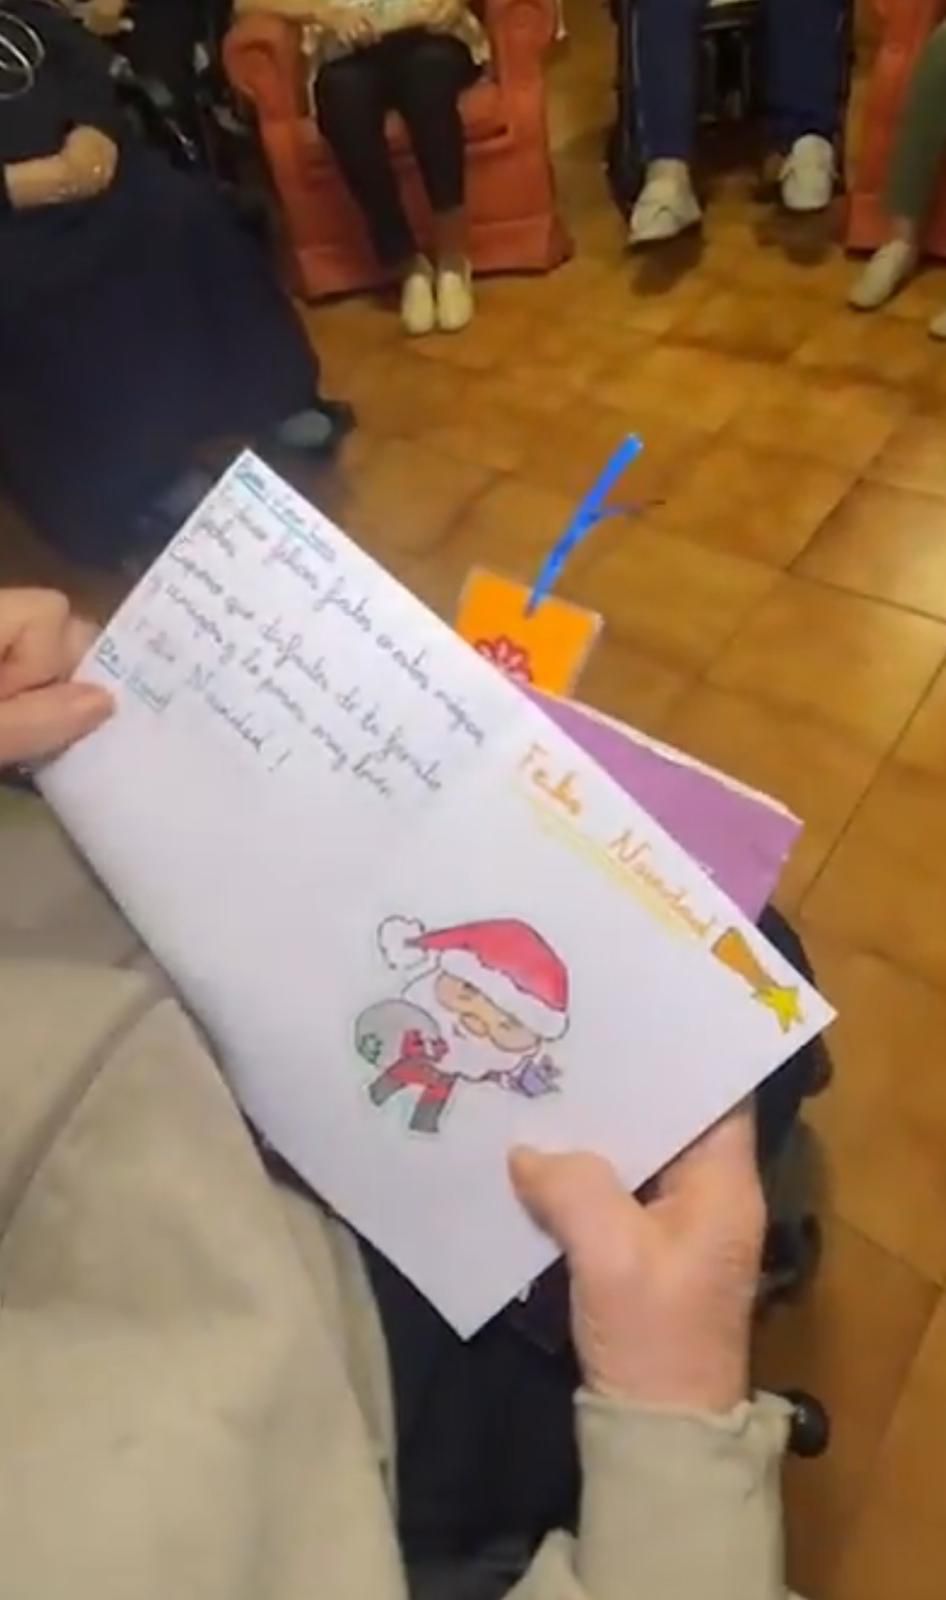 felices fiestas en estas mágicas
fechas.
Espero que disfrutes de tu familia
y amigos y lo pases muy bien.
Feliz Navidad!
Feliz Navidad